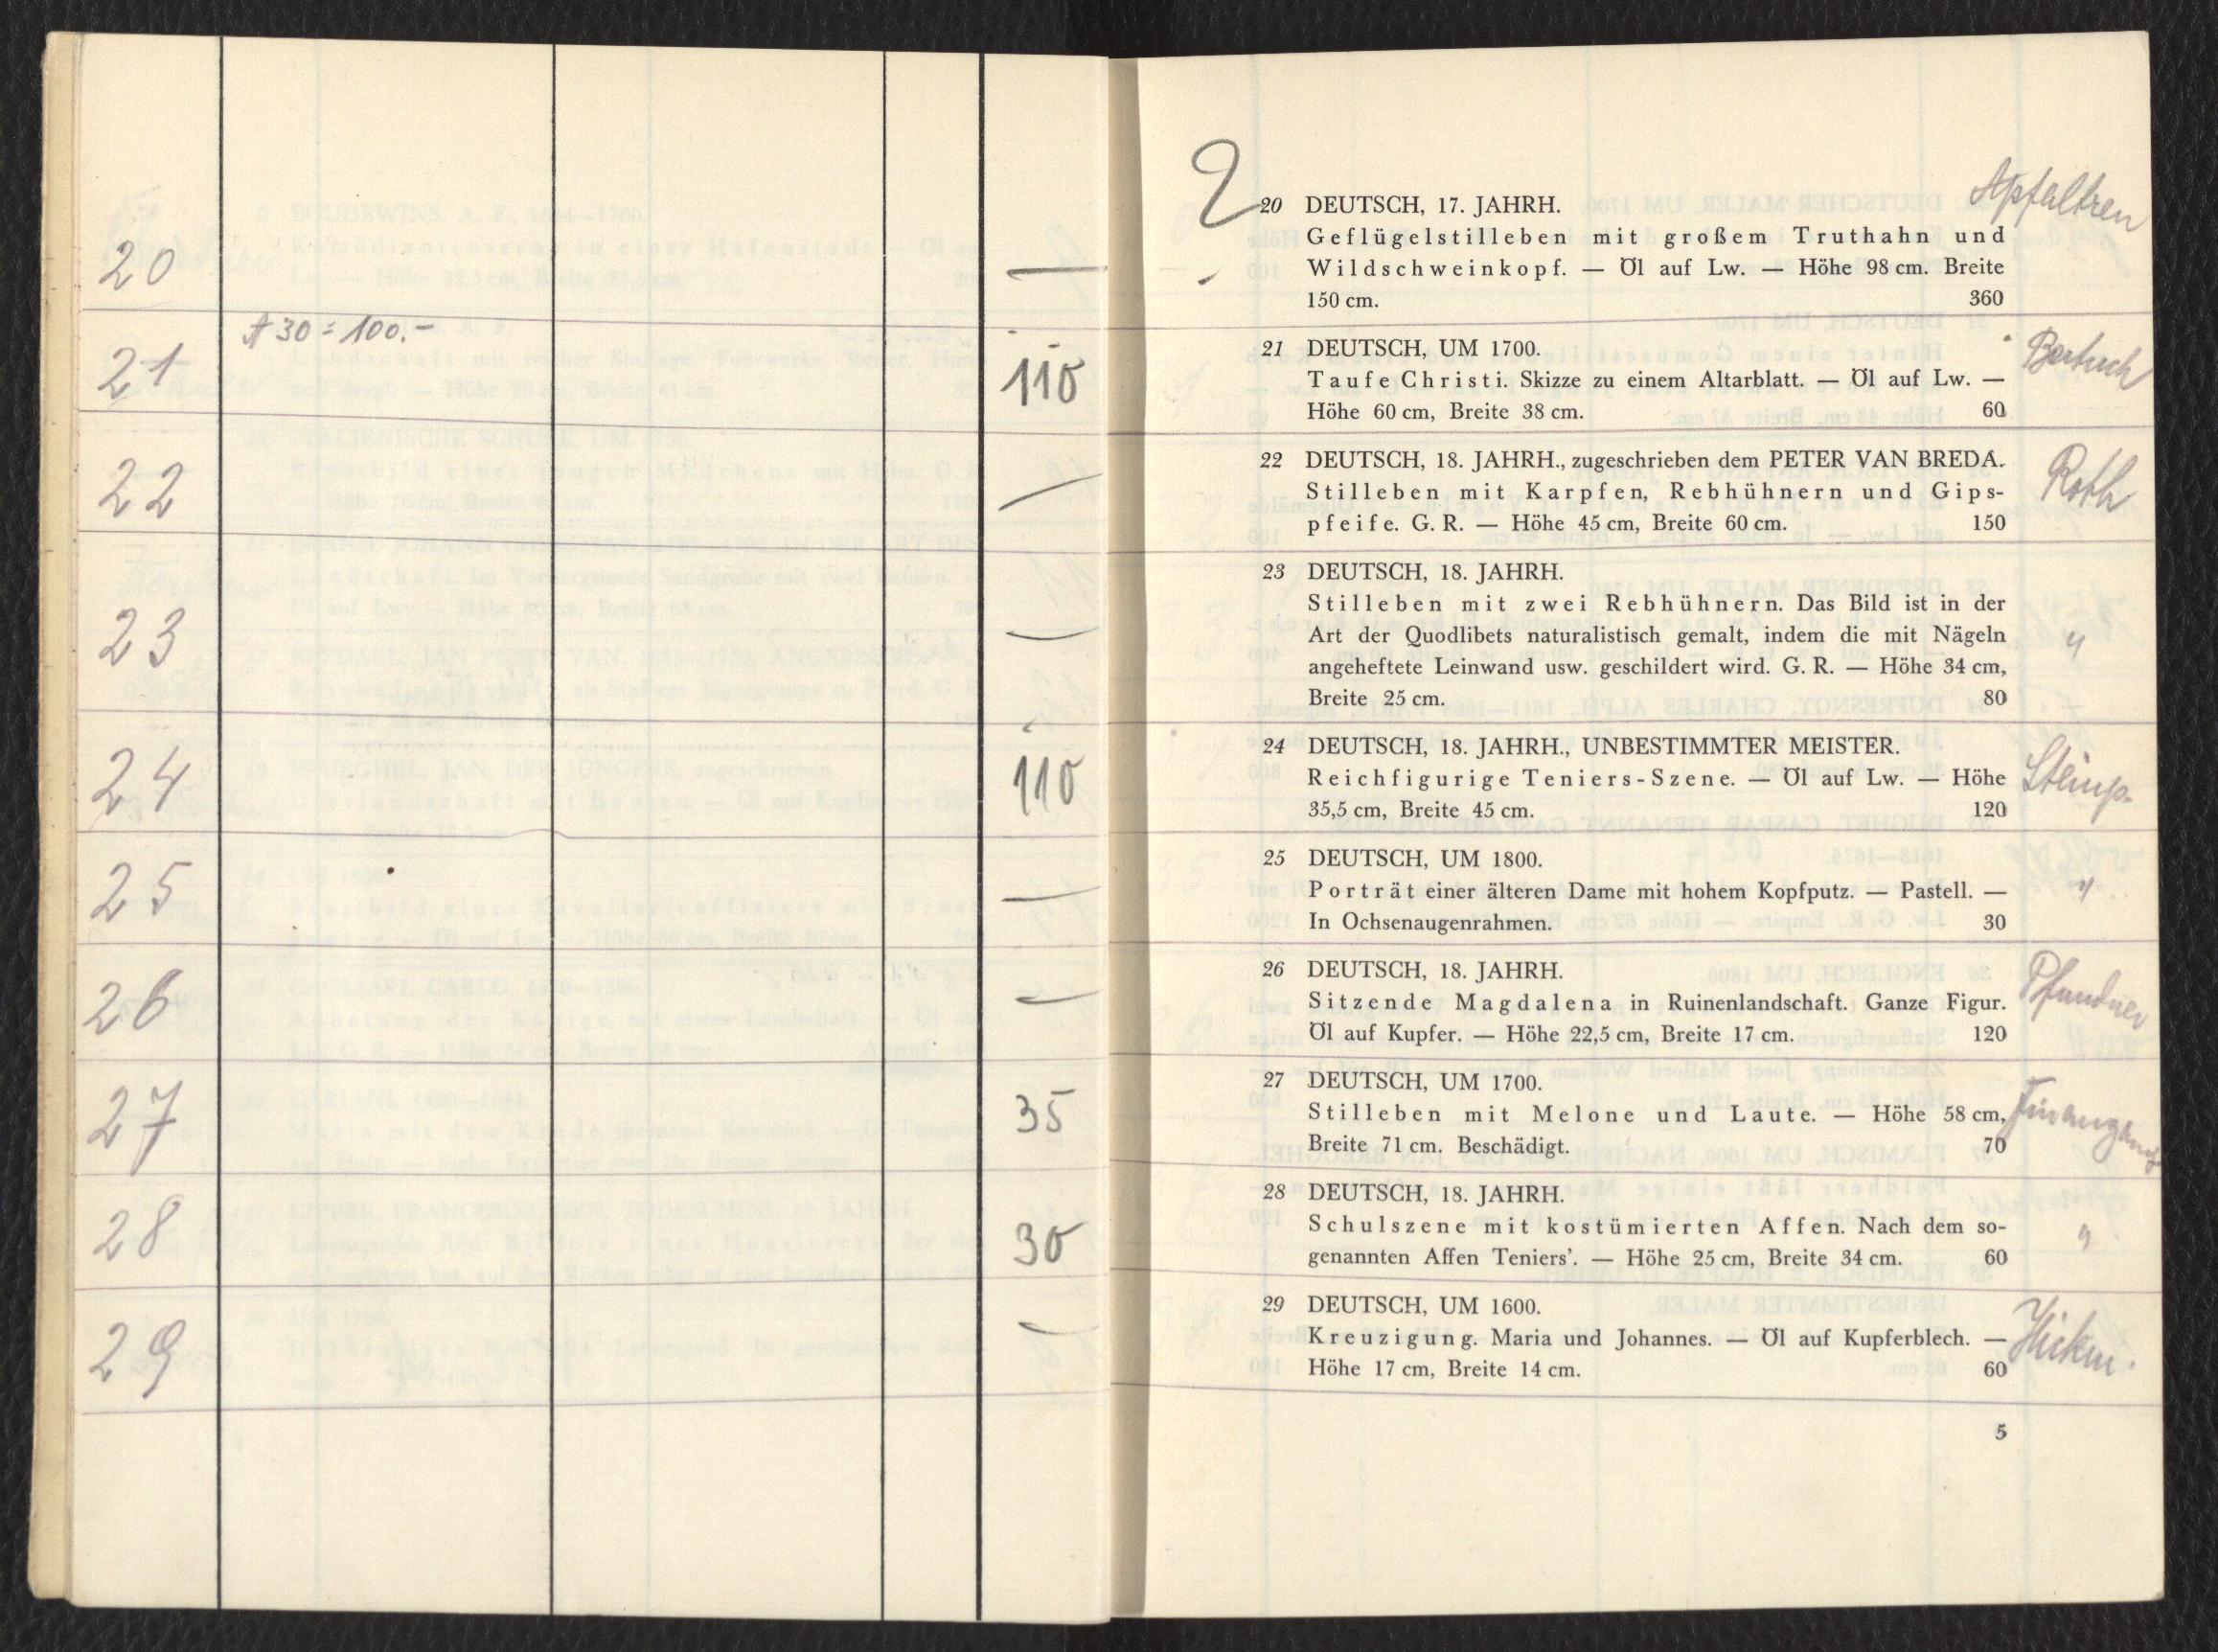 20
—
21
A 30 = 100.-
110
22
—
23
—
24
110
25
—
26
—
27
35
28
30
29
—
2
20 DEUTSCH, 17. JAHRH.
Geflügelstilleben mit großem Truthahn und
Wildschweinkopf. — Öl auf Lw. — Höhe 98 cm. Breite
150 cm. 360
Apfaltren
21 DEUTSCH, UM 1700.
Taufe Christi. Skizze zu einem Altarblatt. — Öl auf Lw. —
Höhe 60 cm, Breite 38 cm. 60
22 DEUTSCH, 18. JAHRH., zugeschrieben dem PETER VAN BREDA.
Stilleben mit Karpfen, Rebhühnern und Gips-
pfeife. G. R. — Höhe 45 cm, Breite 60 cm. 150
Roth
23 DEUTSCH, 18. JAHRH.
Stilleben mit zwei Rebhühnern. Das Bild ist in der
Art der Quodlibets naturalistisch gemalt, indem die mit Nägeln
angeheftete Leinwand usw. geschildert wird. G. R. — Höhe 34 cm,
Breite 25 cm. 80
"
24 DEUTSCH, 18. JAHRH., UNBESTIMMTER MEISTER.
Reichfigurige Teniers-Szene. — Öl auf Lw. — Höhe
35,5 cm, Breite 45 cm. 120
25 DEUTSCH, UM 1800.
Porträt einer älteren Dame mit hohem Kopfputz. — Pastell. —
In Ochsenaugenrahmen. 30
"
26 DEUTSCH, 18. JAHRH.
Sitzende Magdalena in Ruinenlandschaft. Ganze Figur.
Öl auf Kupfer. — Höhe 22,5 cm, Breite 17 cm. 120
Pfundner
27 DEUTSCH, UM 1700.
Stilleben mit Melone und Laute. — Höhe 58 cm,
Breite 71 cm. Beschädigt. 70
28 DEUTSCH, 18. JAHRH.
Schulszene mit kostümierten Affen. Nach dem so-
genannten Affen Teniers'. — Höhe 25 cm, Breite 34 cm. 60
"
29 DEUTSCH, UM 1600.
Kreuzigung. Maria und Johannes. — Öl auf Kupferblech. —
Höhe 17 cm, Breite 14 cm. 60
5